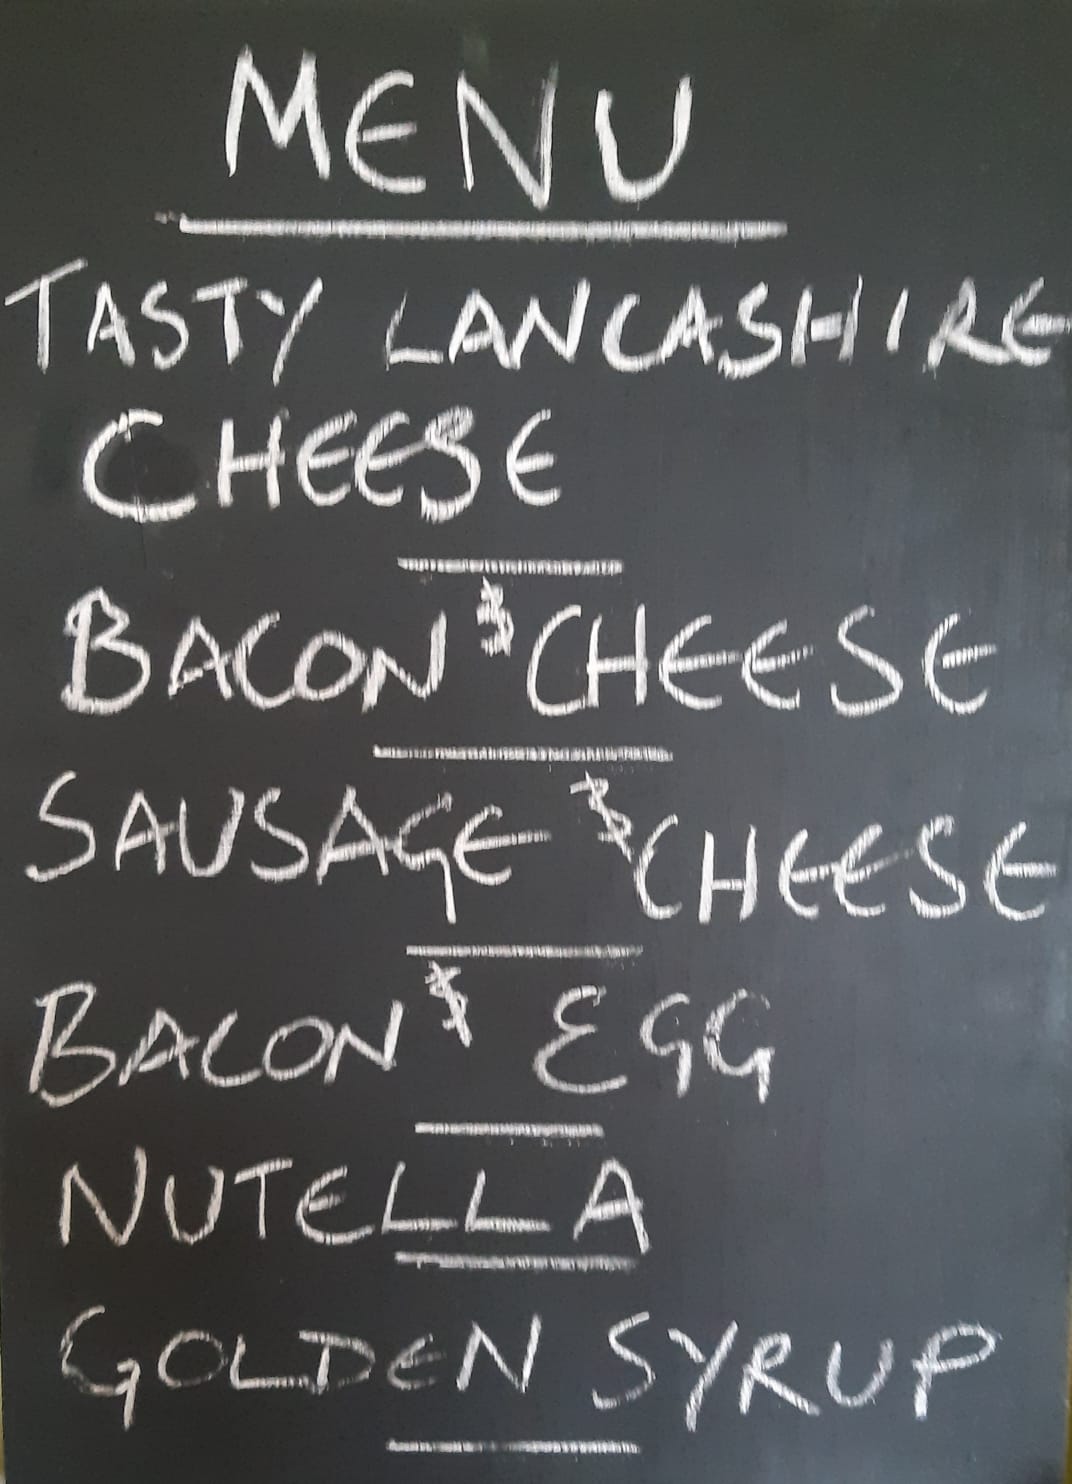 MENU
TASTY LANCASHIRE
CHEESE
BACON & CHEESE
SAUSAGE & CHEESE
BACON & EGG
NUTELLA
GOLDEN SYRUP